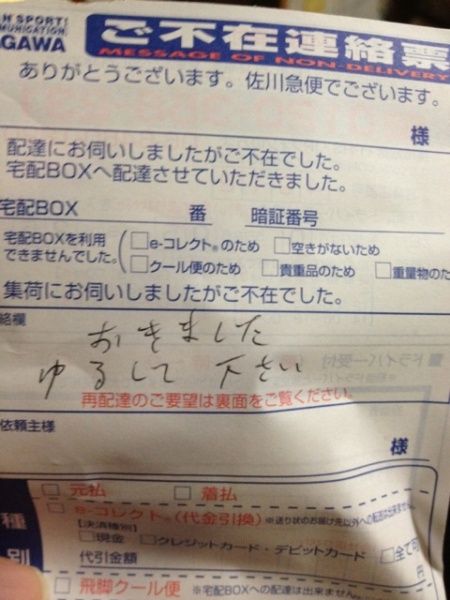 H SPORT!
MUNICATION
GAWA
ご不在連絡票
MESSAGE OF NON-DELIVERY
ありがとうございます。佐川急便でございます。
様
配達にお伺いしましたがご不在でした。
宅配BOXへ配達させていただきました。
宅配BOX 番 暗証番号
宅配BOXを利用できませんでした。
□e-コレクト®のため □空きがないため
□クール便のため □貴重品のため □重量物のた
集荷にお伺いしましたがご不在でした。
絡欄
おきました
ゆるして下さい
再配達のご要望は裏面をご覧ください。
依頼主様
様
種別
□ 元払 □ 着払
□ e-コレクト®(代金引換) ※送り状のお届け先以外への配達は出来ませ
【決済種別】
□現金 □クレジットカード・デビットカード □全て可
代引金額 円
□ 飛脚クール便 ※宅配BOXへの配達は出来ません